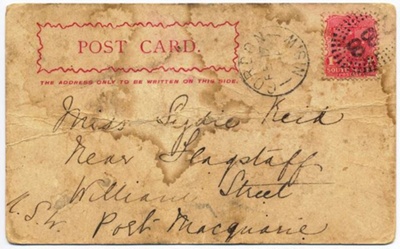 POST CARD.
THE ADDRESS ONLY TO BE WRITTEN ON THIS SIDE.
Miss Lydie Reid
Near Flagstaff
William Street
Port Macquarie
N.S.W